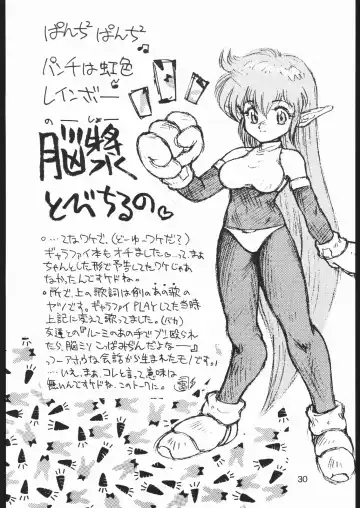 ぱんち² ぱんち²♪
パンチは虹色
レインボー
のーしょー
脳漿
とびちるの♡
○…てなワケで、(どーゆーワケだ?)
ギャラファイ本もオチました…って、まぁ
ちゃんとした形で予告してたワケじゃぁ
なかったんですケドね。
○所で、上の歌詞は例のあの歌の
ヤツです。ギャラファイPLAYしてた当時
上記に変えて歌ってました。(バカ)
友達との『ルーミィのあの手でブン殴られ
たら、脳ミソこっぱみちんだよなー…』
っつーアホゥな会話から生まれたモノです。
…いえ、まぁ、コレと言って意味は
無いんですケドね、このトークに。
30